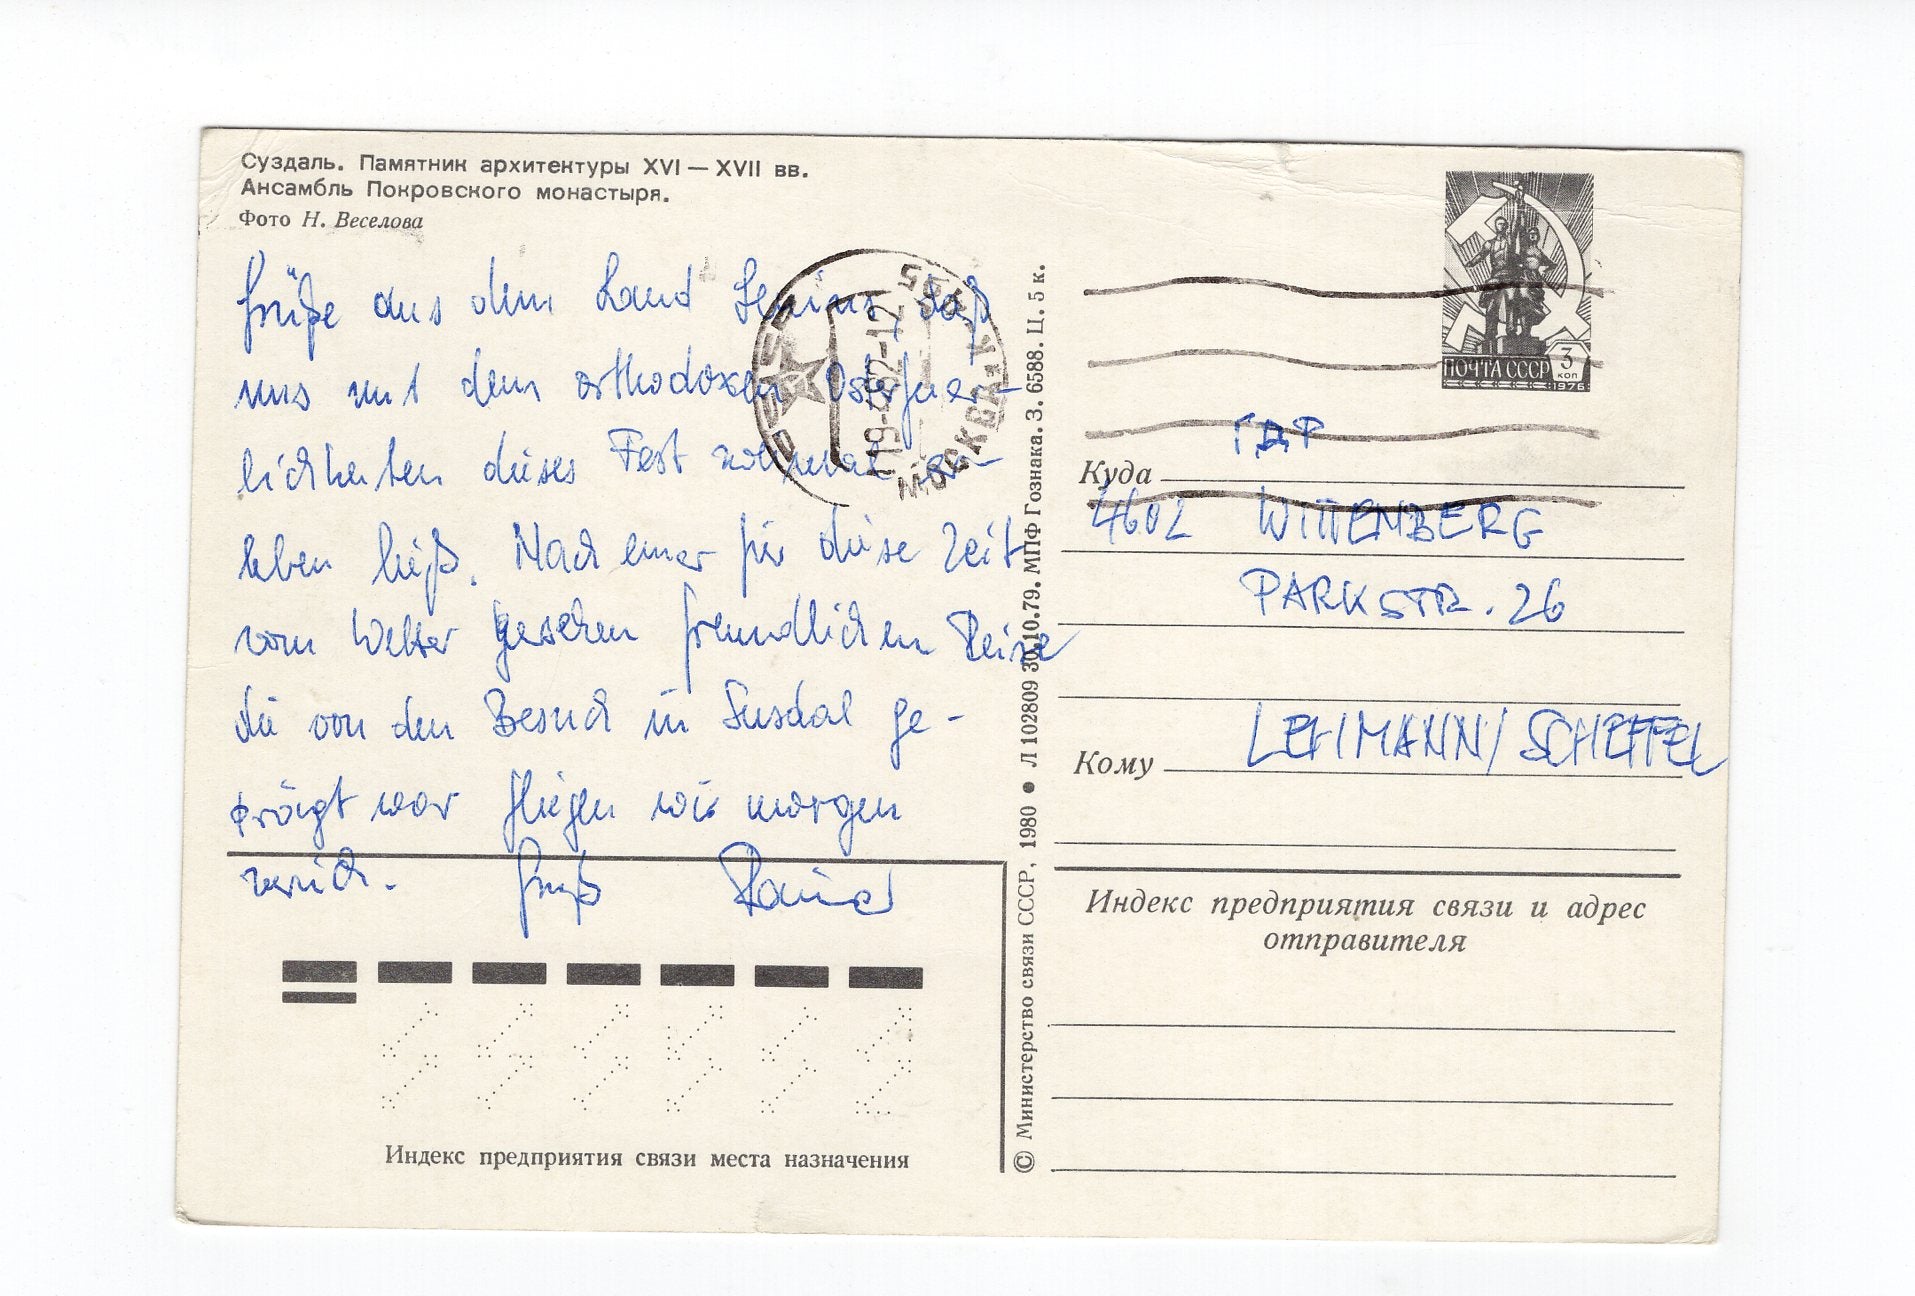 Суздаль. Памятник архитектуры XVI — XVII вв.
Ансамбль Покровского монастыря.
Фото Н. Веселова
Grüße aus dem Land Lenins, daß
uns mit dem orthodoxen Osterfeier-
lichkeiten dieses Fest nochmal er-
leben ließ. Nach einer für diese Zeit
vom Wetter gesehen freundlichen Reise
die von den Besuch in Susdal ge-
prägt war fliegen wir morgen
zurück. Gruß Rainer
Индекс предприятия связи места назначения
© Министерство связи СССР, 1980 ● Л 102809 30.10.79. МПФ Гознака. З. 6588. Ц. 5 к.
СССР
МОСКВА
19-482-12
ПОЧТА СССР 3 коп
1976
ГДР
Куда
4602 WITTENBERG
PARKSTR. 26
Кому LEHMANN/SCHEFFEL
Индекс предприятия связи и адрес
отправителя